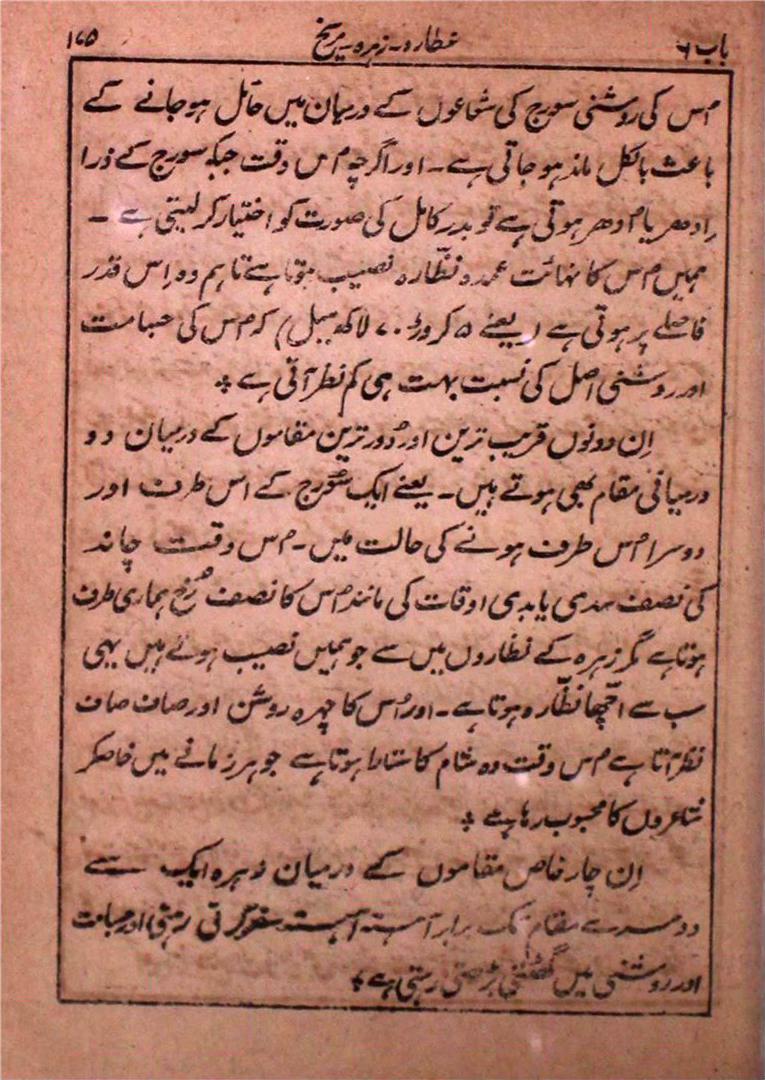 باب ۶ عطارد - زہرہ - مریخ ۱۶۵
اُس کی روشنی سورج کی شعاعوں کے درمیان میں حائل ہوجانے کے
باعث بالکل ماند ہوجاتی ہے - اور اگرچہ اُس وقت جبکہ سورج کے ذرا
اِدھر یا اُدھر ہوتی ہے تو بدر کامل کی صورت کو اختیار کرلیتی ہے -
ہمیں اُس کا نہائت عمدہ نظّارہ نصیب ہوتا ہے تاہم وہ اِس قدر
فاصلے پر ہوتی ہے (یعنے ۱۵ کروڑ ۷۰ لاکھ میل) کہ اُس کی جسامت
اور روشنی اصل کی نسبت بہت ہی کم نظر آتی ہے ٭
اِن دونوں قریب ترین اور دُور ترین مقاموں کے درمیان دو
درمیانی مقام بھی ہوتے ہیں - یعنے ایک سُورج کے اس طرف اور
دوسرا اُس طرف ہونے کی حالت میں - اُس وقت چاند
کی نصف سدی یا بدی اوقات کی مانند اُس کا نصف رُخ ہماری طرف
ہوتا ہے مگر زہرہ کے نظاروں میں سے جو ہمیں نصیب ہوئے ہیں یہی
سب سے اچّھا نظّارہ ہوتا ہے - اور اُس کا چہرہ روشن اور صاف صاف
نظر آتا ہے اُس وقت وہ شام کا ستارہ ہوتا ہے جو ہر زمانے میں خاصکر
شاعروں کا محبوب رہا ہے ٭
اِن چار خاص مقاموں کے درمیان زہرہ ایک سے
دوسرے مقام تک برابر آہستہ آہستہ سفر کرتی رہتی اور جسامت
اور روشنی میں گھٹتی بڑھتی رہتی ہے ٭